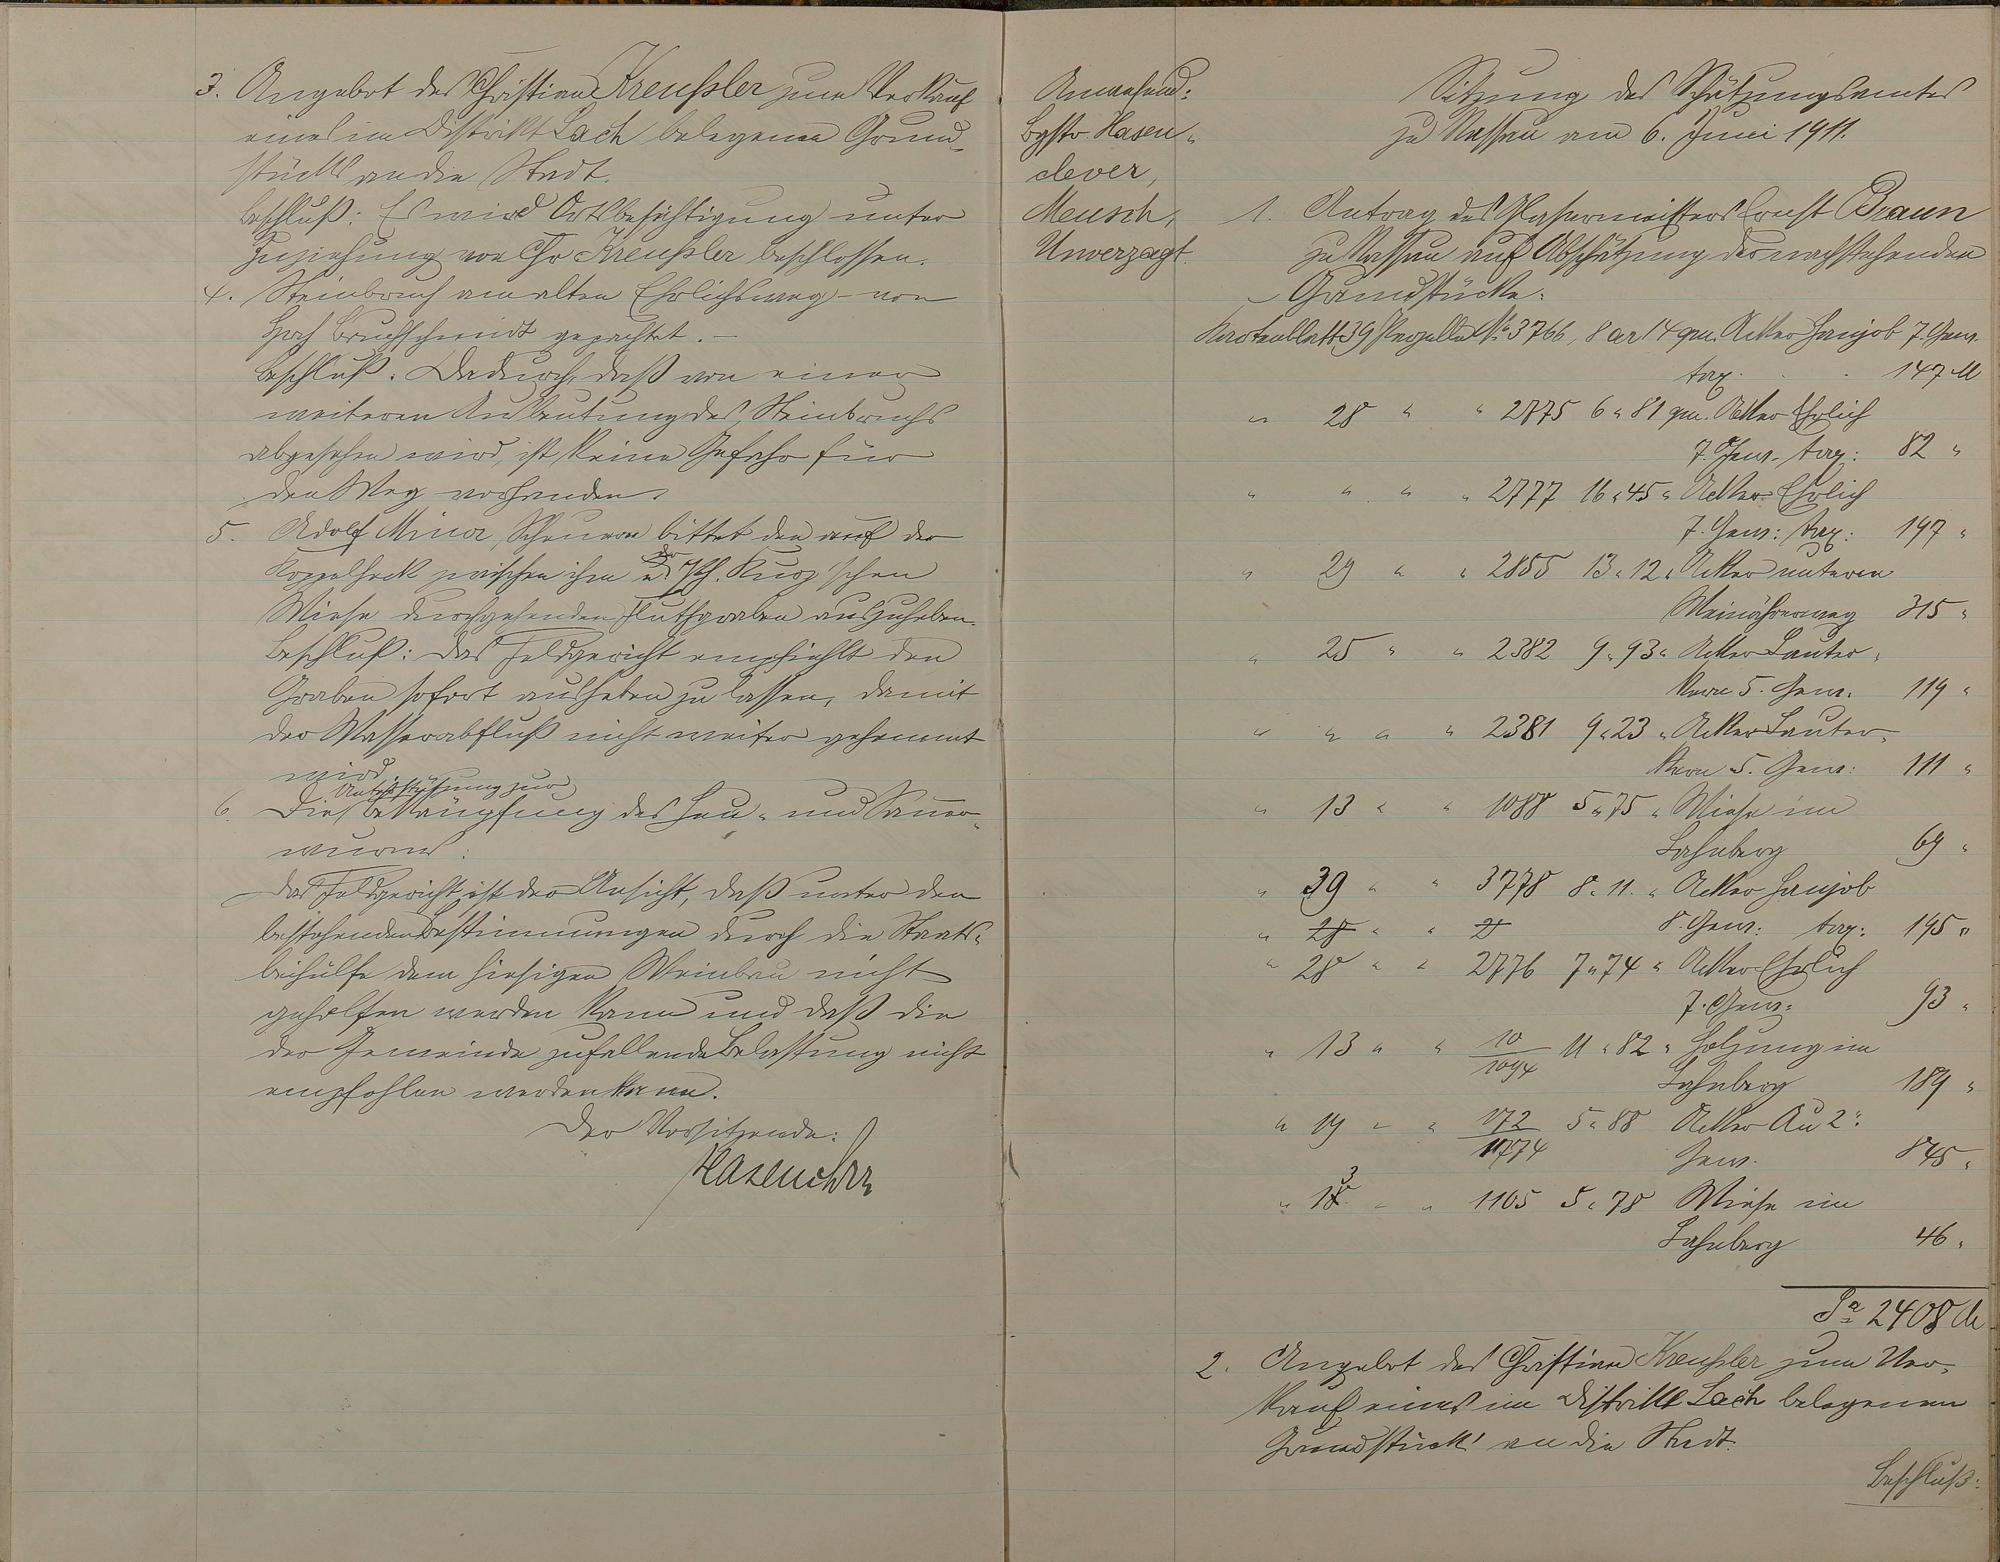 3. Angebot des Christian Kreußler zum Verkauf
eines im Distrikt Lach belegenen Grund-
stücks an die Stadt.
Beschluß: Es wird Ortsbesichtigung unter
Zuziehung von Chr Kreußler beschlossen.
4. Steinbruch am alten Ehrlichsweg – von
Bruchschmidt gepachtet. –
Beschluß. Dadurch, daß von einer
weiteren Ausbeutung des Steinbruchs
abgesehen wird, ist keine Gefahr für
den Weg vorhanden.
5. Adolf Minor, Scheuern bittet den auf der
Koppelheck zwischen ihm u. der Ph. Kurz'schen
Wiese durchgehenden Fluthgraben auszuheben.
Beschluß: Das Feldgericht empfiehlt den
Graben sofort ausheben zu lassen, damit
der Wasserabfluß nicht weiter gehemmt
wird.
6. Die Unterstützung zur Bekämpfung des Heu- und Sauer-
wurms:
Das Feldgericht ist der Ansicht, daß unter den
bestehenden Bestimmungen durch die Staats-
beihülfe dem hiesigen Weinbau nicht
geholfen werden kann und daß die
der Gemeinde zufallende Belastung nicht
empfohlen werden kann.
Der Vorsitzende:
Hasenclever
Anwesend:
Bgstr. Hasen-
clever,
Meusch,
Unverzagt.
Sitzung des Schätzungsamtes
zu Nassau am 6. Juni 1911.
1. Antrag des Wasermeisters Ernst Braun
zu Nassau auf Abschätzung der nachstehenden
Grundstücke:
Kartenblatt 39 Parzelle No 3766, 8 ar 14 qm. Acker Hanjob 7. Gew.
tax. 147 M
" 28 " " 2775 6 " 81 qm. Acker Ehrlich
7. Gew. tax: 82 "
" " " " 2777 16 " 45 " Acker Ehrlich
7. Gew: tax: 197 "
" 29 " " 2855 13 " 12 " Acker unterm
Weinährerweg 315 "
" 25 " " 2382 9 " 93 " Acker Lauter-
kern 5. Gew. 119 "
" " " " 2381 9 " 23 " Acker Lauter-
kern 5. Gew: 111 "
" 13 " " 1088 5 " 75 " Wiese im
Lahnberg 69 "
" 39 " " 3778 8 " 11 " Acker Hanjob
" 28 " " 2 8. Gew: tax: 195 "
" 28 " " 2776 7 " 74 " Acker Ehrlich
7. Gew: 93 "
" 13 " " 10/1094 11 " 82 " Holzung im
Lahnberg 189 "
" 19 " " 172/1774 5 " 88 Acker Au 2"
Gew. 845 "
" 13 " " 1105 5 " 78 Wiese im
Lahnberg 46 "
Sa 2408 M
2. Angebot des Christian Kreußler zum Ver-
kauf eines im Distrikt Lach belegenen
Grundstücks an die Stadt.
Beschluß: